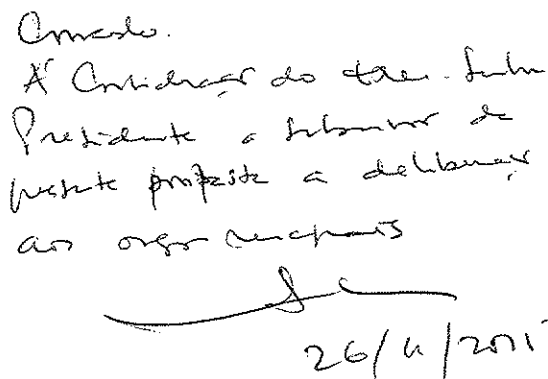 Concordo.
À Consideração do Exmo. Senhor
Presidente a submissão da
presente proposta a deliberação
aos orgãos municipais
26/11/2015